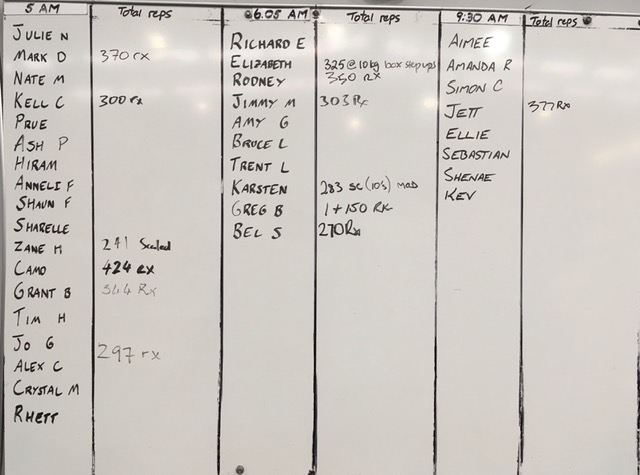 5 AM Total reps
JULIE N
MARK D 370 rx
NATE M
KELL C 300 rx
PRUE
ASH P
HIRAM
ANNELI F
SHAUN F
SHARELLE
ZANE H 241 Scaled
CAMO 424 rx
GRANT B 344 Rx
TIM H
JO G 297 rx
ALEX C
CRYSTAL M
RHETT
6.05 AM Total reps
RICHARD E
ELIZABETH 325 @ 10kg box step ups
RODNEY 350 RX
JIMMY M 303 Rx
AMY G
BRUCE L
TRENT L
KARSTEN 283 sc (10s) mad
GREG B 1 + 150 RX
BEL S 270 Rx
9:30 AM Total reps
AIMEE
AMANDA R
SIMON C
JETT 377 Rx
ELLIE
SEBASTIAN
SHENAE
KEV